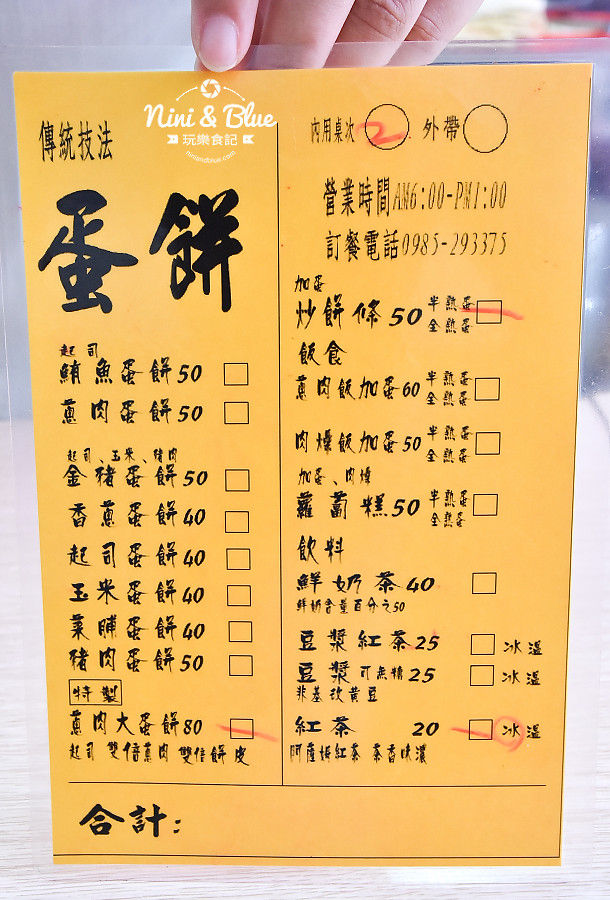 Nini & Blue
玩樂食記
niniandblue.com
傳統技法
蛋餅
起司
鮪魚蛋餅50
蔥肉蛋餅50
起司、玉米、豬肉
金豬蛋餅50
香蔥蛋餅40
起司蛋餅40
玉米蛋餅40
菜脯蛋餅40
豬肉蛋餅50
特製
蔥肉大蛋餅80
起司 雙倍蔥肉 雙倍餅皮
內用桌次 2 外帶
營業時間AM6:00-PM1:00
訂餐電話0985-293375
加蛋
炒餅條50 半熟蛋
全熟蛋
飯食
蔥肉飯加蛋60 半熟蛋
全熟蛋
肉燥飯加蛋50 半熟蛋
全熟蛋
加蛋、肉燥
蘿蔔糕50 半熟蛋
全熟蛋
飲料
鮮奶茶40
鮮奶含量百分之50
豆漿紅茶25 冰溫
豆漿可無糖25 冰溫
非基改黃豆
紅茶 20 冰溫
阿薩姆紅茶 茶香味濃
合計: